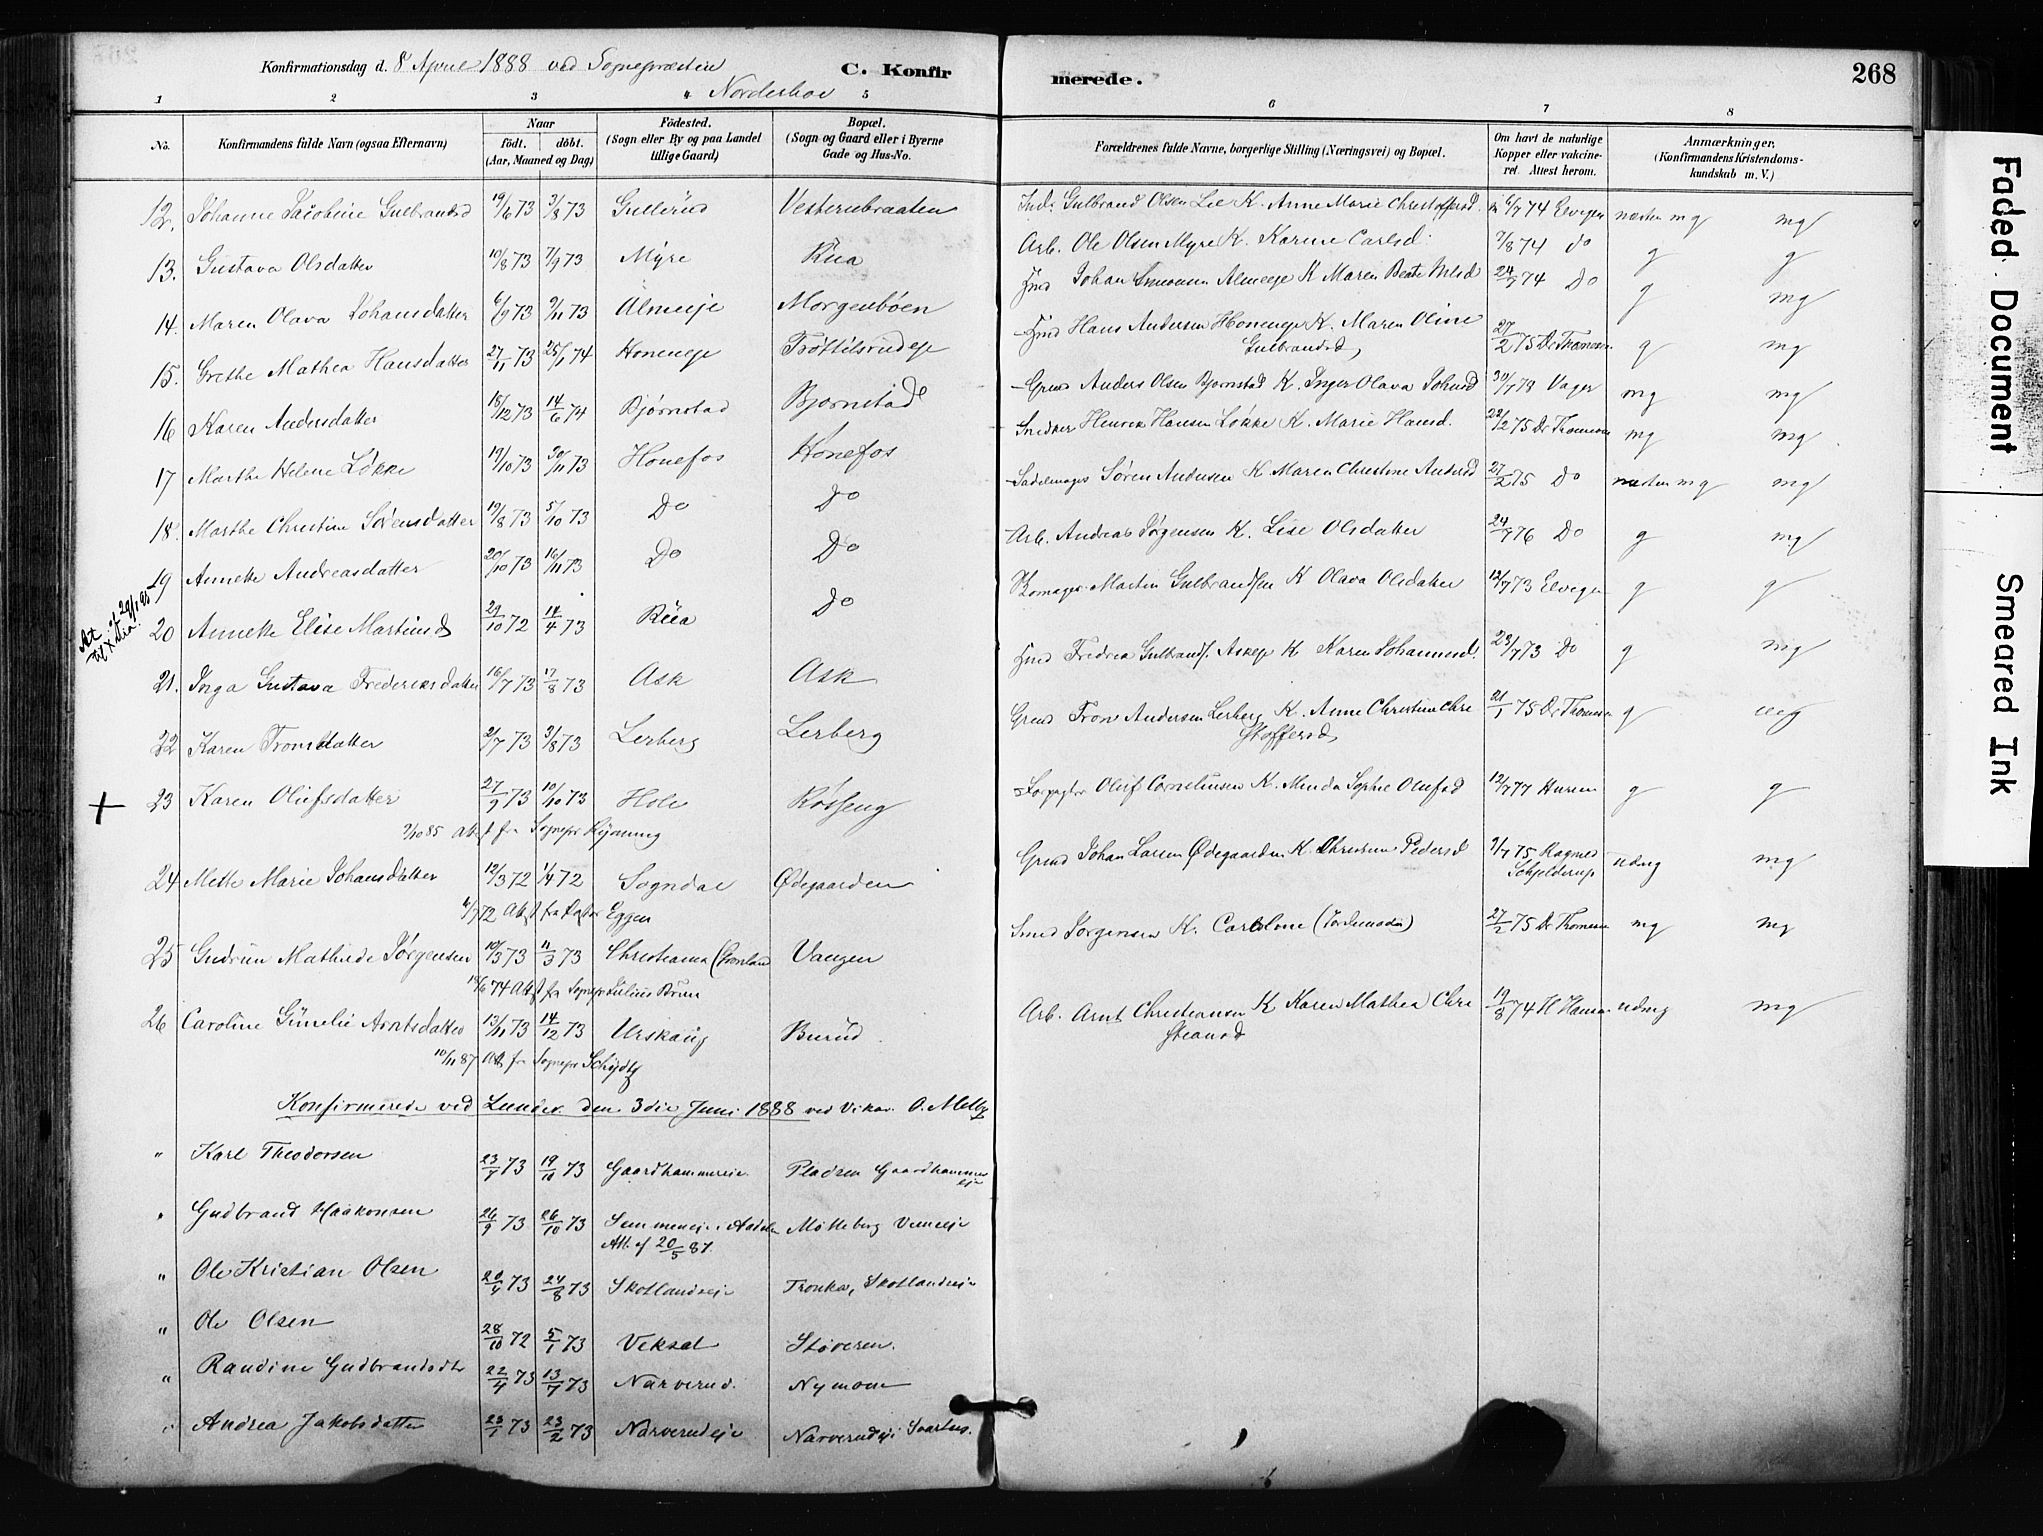 Konfirmationsdag d. 8 April 1888 ved Sognepræsten C. Konfir merede. 268
Norderhov
1 2 3 4 5 6 7 8
No. Konfirmandens fulde Navn (ogsaa Efternavn) Naar født. døbt. (Aar, Maaned og Dag) Fødested. (Sogn eller By og paa Landet tillige Gaard) Bopæl. (Sogn og Gaard eller i Byerne Gade og Hus-No. Forældrenes fulde Navne, borgerlige Stilling (Næringsvei) og Bopæl. Om havt de naturlige Kopper eller vakcineret. Attest herom. Anmærkninger, (Konfirmandens Kristendomskundskab m. V.)
12. Johanne Jacobine Gulbrandsd 19/6 73 3/8 73 Gullerud Vesternbraaten Inds Gulbrand Olsen Lie K. Anne Marie Christoffersd. 6/7 74 Elvigen næsten mg mg
13. Gustava Olsdatter 10/8 73 7/9 73 Myre Rua Arb. Ole Olsen Myre K. Karine Carlsd. 7/8 74 do g g
14. Maren Olava Johansdatter 6/9 73 9/11 73 Almeje Morgenbøen Hmd Johan Almeje K Maren Beate Nilsd 24/7 74 Do g mg
15. Grethe Mathea Hansdatter 27/11 73 25/1 74 Honeneje Trøttilsrudeje Hmd Hans Andersen K. Maren Oline Gulbrandsd 27/2 75 Dr Thomesen g mg
16 Karen Andersdatter 18/12 73 14/6 74 Bjørnstad Bjornstad Grmd Anders Olsen Bjornstad K. Inger Olava Johnsd 30/7 78 Vager mg mg
17 Marthe Helene Løkke 19/10 73 30/11 73 Honefos Honefos Snedker Henrik Hansen Løkke K. Marie Hansd. 22/2 75 Dr Thomesen mg mg
18. Marthe Christine Sørensdatter 19/8 73 5/10 73 Do Do Sadelmager Søren Andersen K Maren Christine Andersd 27/2 75 Do næsten mg mg
19 Annette Andreasdatter 20/10 73 16/11 73 Do Do Arb. Andreas Jørgensen K. Lise Olsdatter 24/7 76 Do g mg
20 Annette Elise Martinsd 29/10 72 14/4 73 Rua Do Skomager Martin Gulbrandsen K Olava Olsdatter 12/7 73 Elvigen g g
21. Inga Gustava Frederiksdatter 16/7 73 17/8 73 Ask Ask Hmd Fredrik Gulbrands. Askeje K Karen Johannesd. 23/7 73 Do g mg
22 Karen Tronsdatter 2/7 73 3/8 73 Lerberg Lerberg Grmd Tron Andersen Lerberg K. Anne Christine Christoffersd 21/1 75 Dr Thomesen g mg
23 Karen Olufsdatter 27/9 73 10/10 73 Hole Røsseng Forpagter Oluf Corneliusen K. Minda Sophie Olufsd 12/7 77 Husem g g
9/10 85 Att fr Sognepr
24 Mette Marie Johansdatter 12/3 72 1/4 72 Sogndal Ødegaarden Grmd Johan Larsen Ødegaarden K. Christine Pedersd 9/7 75 Schjelderup udmg mg
4/7 72 Att fra Pastor Eggen
25 Gudrun Mathilde Jørgensen 10/3 73 11/3 73 Christiania (Grønland Vangen Smed Jorgensen K. Caroline 27/2 75 Dr Thomesen mg mg
18/6 74 Att fr Sognepr Julius Bruun
26 Caroline Gunelie Arntsdatter 13/11 73 14/12 73 Urskaug Burud Arb. Arnt Christiansen K Karen Mathea Christiansd 19/8 74 H Hansen udmg mg
10/11 87 Att fr Sognepr Schiødtz
Konfirmerede ved Lunder den 3die Juni 1888 ved Vikar O. Melby
" Karl Theodorsen 23/7 73 19/10 73 Gaardhammereie Pladsen Gaardhammereie
" Gudbrand Haakonsen 26/9 73 26/10 73 Semmeneje i Aadalen Møtteberg Vemeeje
Att. af 20/5 87.
" Ole Kristian Olsen 20/4 73 24/8 73 Skotlandseje Tronka, Skotlandseje
" Ole Olsen 28/10 72 5/1 73 Veksal Støveren.
" Randine Gudbrandsdtr 22/4 73 13/7 73 Narverud. Nymoen
" Andrea Jakobsdatter 23/1 73 23/2 73 Narverudeje Narverudeje Svartus.
Faded Document
Smeared Ink